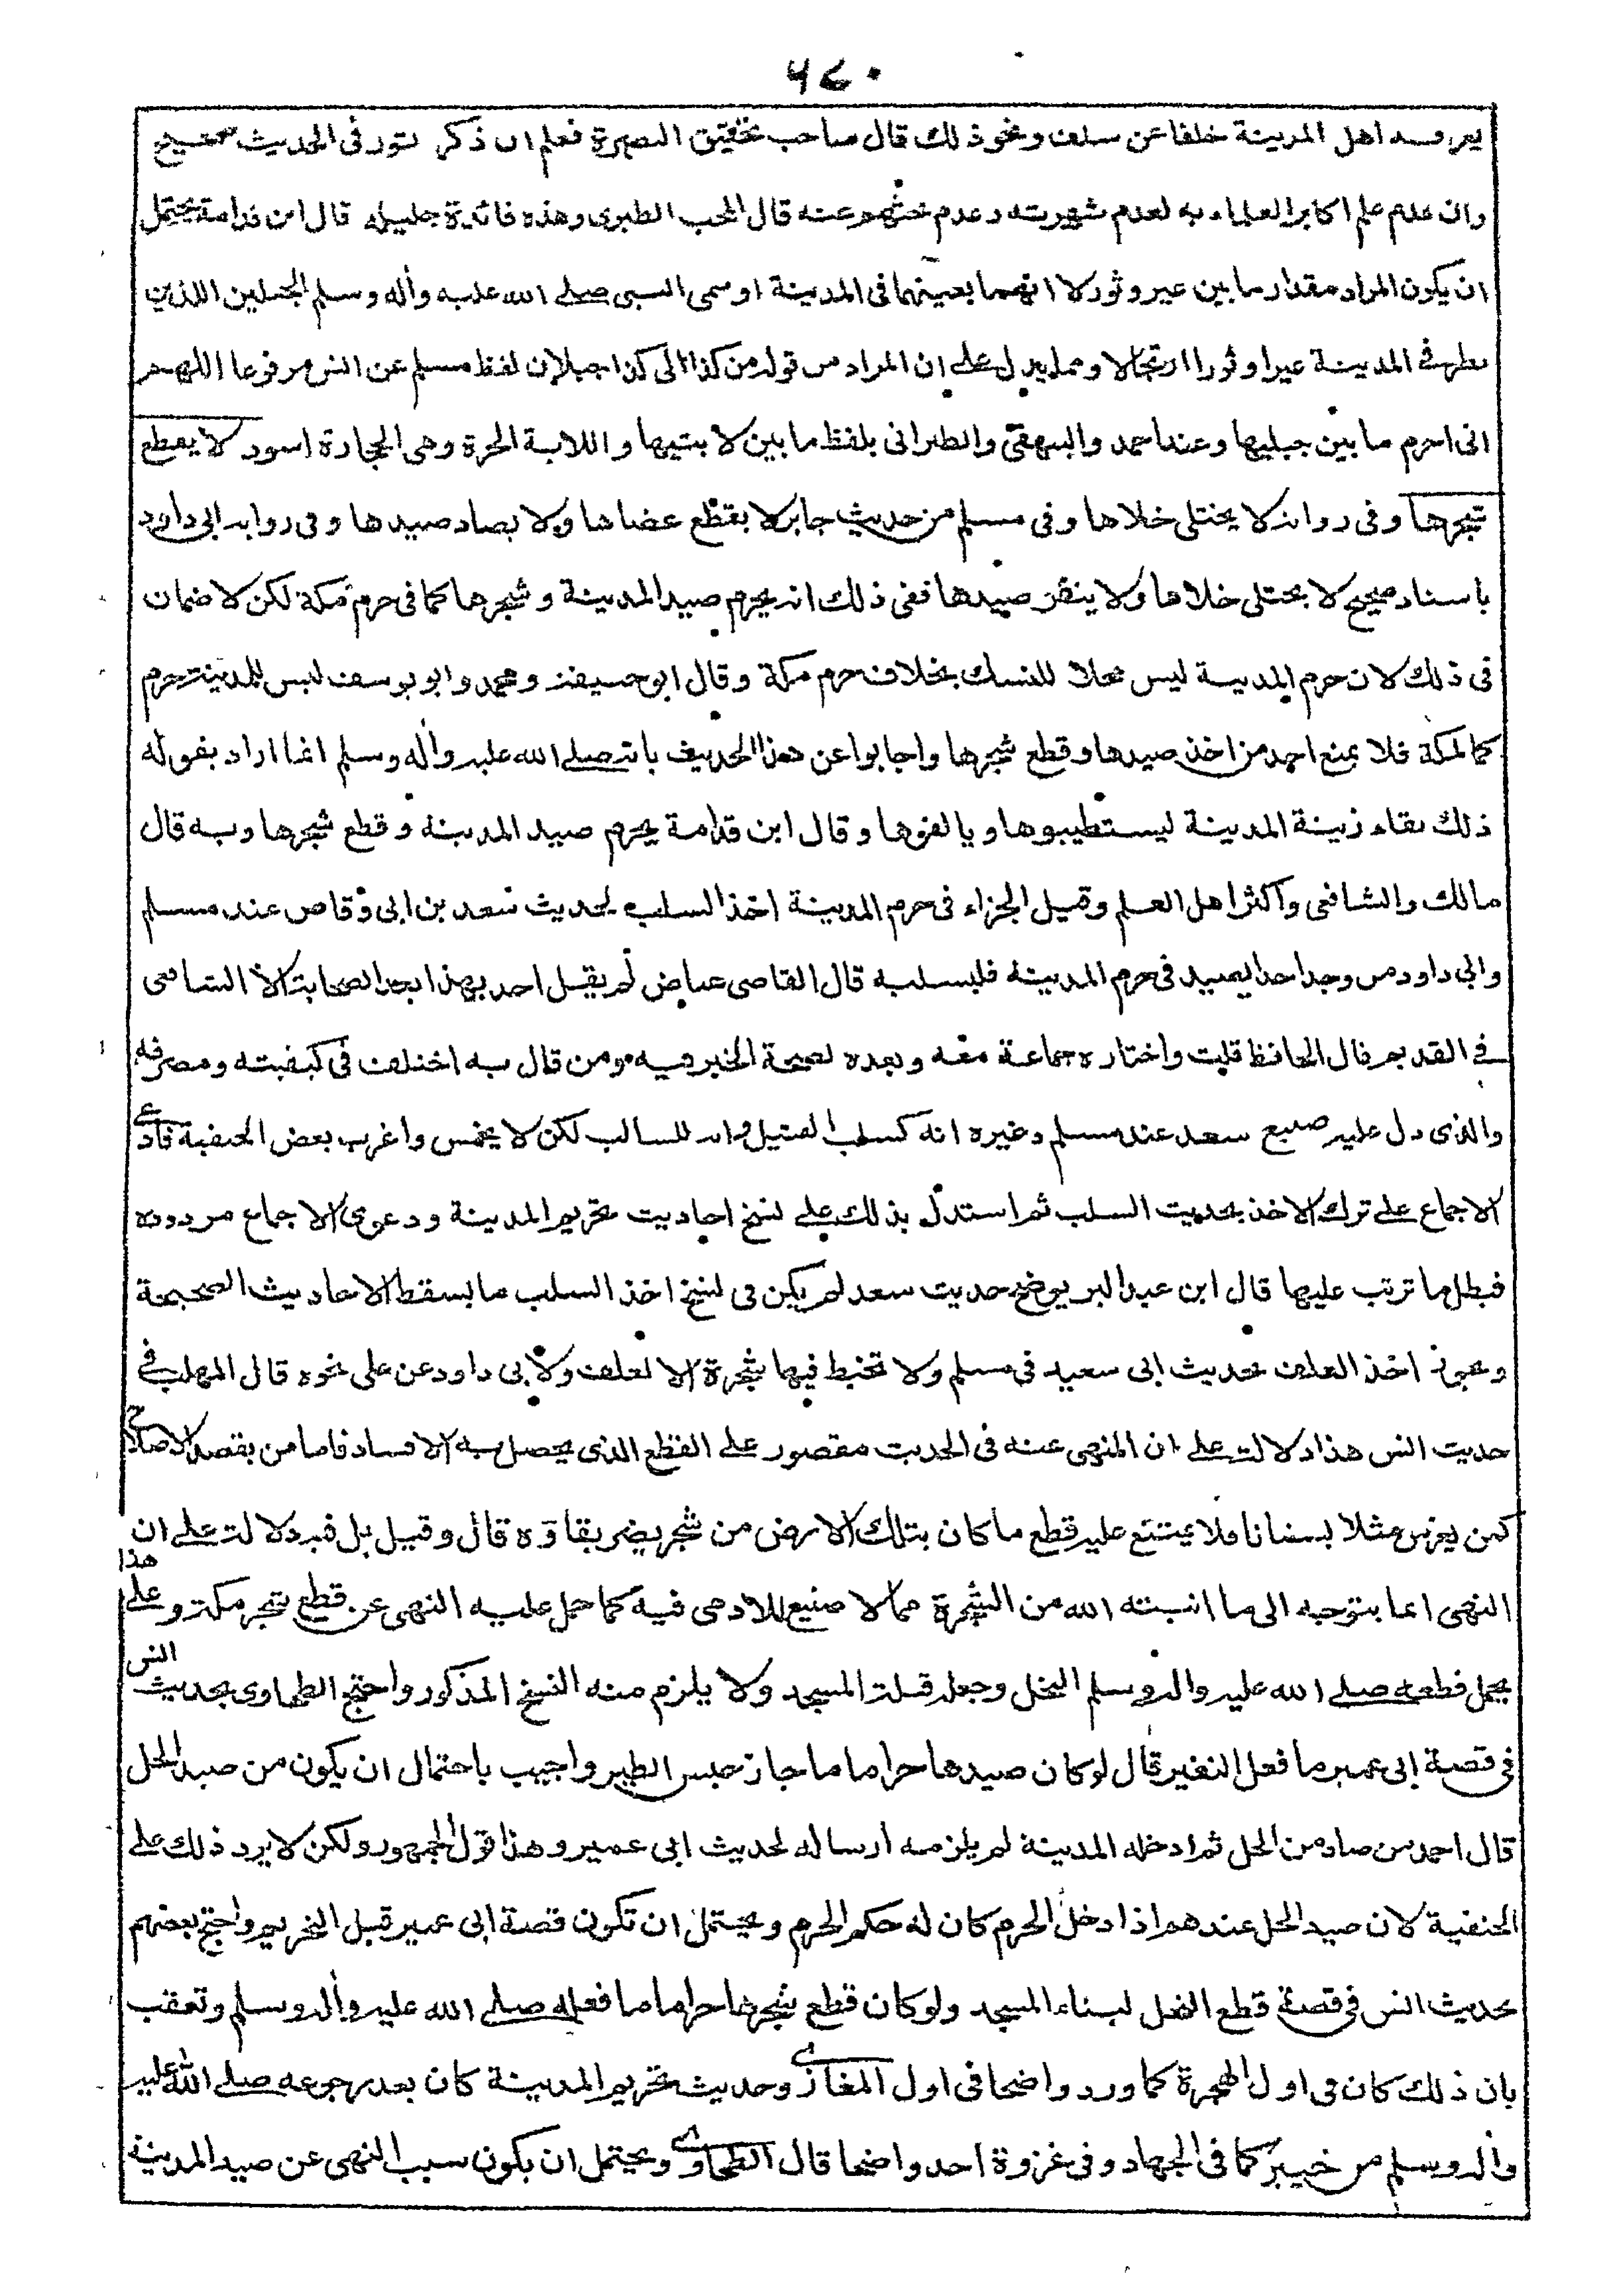 ٦٤٠
يعرفه اهل المدينة خلفا عن سلف ونحو ذلك قال صاحب تحقيق النصرة فعلم ان ذكر ثور فى الحديث صحيح
وان عدم علم اكابر العلماء به لعدم شهرته وعدم بحثهم عنه قال المحب الطبرى وهذه فائدة جليله قال ابن قدامة يحتمل
ان يكون المراد مقدار ما بين عير وثور لا انهما بعينهما فى المدينة او سمى النبى صلى الله عليه وأله وسلم الجبلين اللذين
بطرفى المدينة عيرا وثورا ارتجالا ومما يدل على ان المراد من قوله من كذا الى كذا جبلان لفظ مسلم عن انس مرفوعا اللهم
انى احرم ما بين جبليها وعند احمد والبيهقى والطبرانى بلفظ ما بين لابتيها واللابة الحرة وهى الحجارة اسود لا يقطع
شجرها وفى رواية لا يختلى خلاها وفى مسلم من حديث جابر لا يقطع عضاها ولا يصاد صيدها وفى رواية ابى داود
باسناد صحيح لا يختلى خلاها ولا ينفر صيدها ففى ذلك انه يحرم صيد المدينة وشجرها كما فى حرم مكة لكن لا ضمان
فى ذلك لان حرم المدينة ليس محلا للنسك بخلاف حرم مكة وقال ابو حنيفة ومحمد وابو يوسف ليس للمدينة حرم
كما لمكة فلا يمنع احد من اخذ صيدها وقطع شجرها واجابوا عن هذا الحديث بانه صلى الله عليه وأله وسلم انما اراد بقوله
ذلك بقاء زينة المدينة ليستطيبوها ويالفوها وقال ابن قدامة يحرم صيد المدينة وقطع شجرها وبه قال
مالك والشافعى واكثر اهل العلم وقيل الجزاء فى حرم المدينة اخذ السلب لحديث سعد بن ابى وقاص عند مسلم
وابى داود من وجد احدا يصيد فى حرم المدينة فليسلبه قال القاضى عياض لم يقل احد بهذا بعد الصحابة الا الشافعى
فى القديم قال الحافظ قلت واختاره جماعة معه وبعده لصحة الخبر فيه ومن قال به اختلف فى كيفيته ومصرفه
والذى دل عليه صنيع سعد عند مسلم وغيره انه كسلب القتيل وانه للسالب لكن لا يخمس واغرب بعض الحنفية فادعى
الاجماع على ترك الاخذ بحديث السلب ثم استدل بذلك على نسخ احاديث تحريم المدينة ودعوى الاجماع مردوده
فبطل ما ترتب عليها قال ابن عبد البر يوضح حديث سعد لم يكن فى نسخ اخذ السلب ما يسقط الاحاديث الصحيحة
ويجوز اخذ العلف لحديث ابى سعيد فى مسلم ولا تخبط فيها شجرة الا لعلف ولابى داود عن على نحوه قال المهلب فى
حديث انس هذا دلالة على ان المنهى عنه فى الحديث مقصور على القطع الذى يحصل به الافساد فاما من يقصد الاصلاح
كمن يغرس مثلا بستانا فلا يمتنع عليه قطع ما كان بتلك الارض من شجر يضر بقاؤه قال وقيل بل فيه دلالة على ان
النهى انما يتوجه الى ما انبته الله من الشجرة مما لا صنيع للادمى فيه كما حمل عليه النهى عن قطع شجر مكة وعلى هذا
يحمل قطعه صلى الله عليه واله وسلم النخل وجعله قبلة المسجد ولا يلزم منه النسخ المذكور واحتج الطحاوى بحديث انس
فى قصة ابى عمير ما فعل النغير قال لو كان صيدها حراما ما جاز حبس الطير واجيب باحتمال ان يكون من صيد الحل
قال احمد من صاد من الحل ثم ادخله المدينة لم يلزمه ارساله لحديث ابى عمير وهذا قول الجمهور ولكن لا يرد ذلك على
الحنفية لان صيد الحل عندهم اذا دخل الحرم كان له حكم الحرم ويحتمل ان تكون قصة ابى عمير قبل التحريم واحتج بعضهم
بحديث انس فى قصة قطع النخل لبناء المسجد ولو كان قطع شجرها حراما ما فعله صلى الله عليه وأله وسلم وتعقب
بان ذلك كان فى اول الهجرة كما ورد واضحا فى اول المغازى وحديث تحريم المدينة كان بعد رجوعه صلى الله عليه
وأله وسلم من خيبر كما فى الجهاد وفى غزوة احد واضحا قال الطحاوى ويحتمل ان يكون سبب النهى عن صيد المدينة